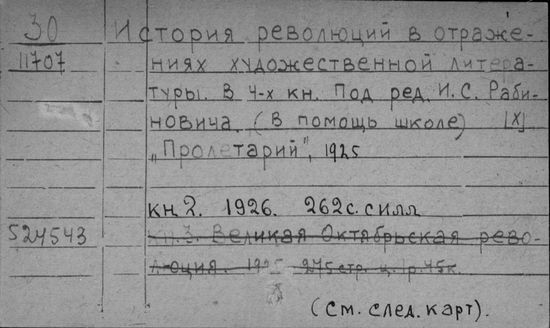 30 История революций в отраже-
11707 ниях художественной литера-
туры. В 4-х кн. Под ред. И.С. Раби-
новича. (В помощь школе) [Х]
„Пролетарий", 1925
кн 2. 1926. 262 с. с илл
524543 кн.3. Великая Октябрьская рево-
люция. 1925 275 стр. ц. 1р. 45к.
(см. след. карт).